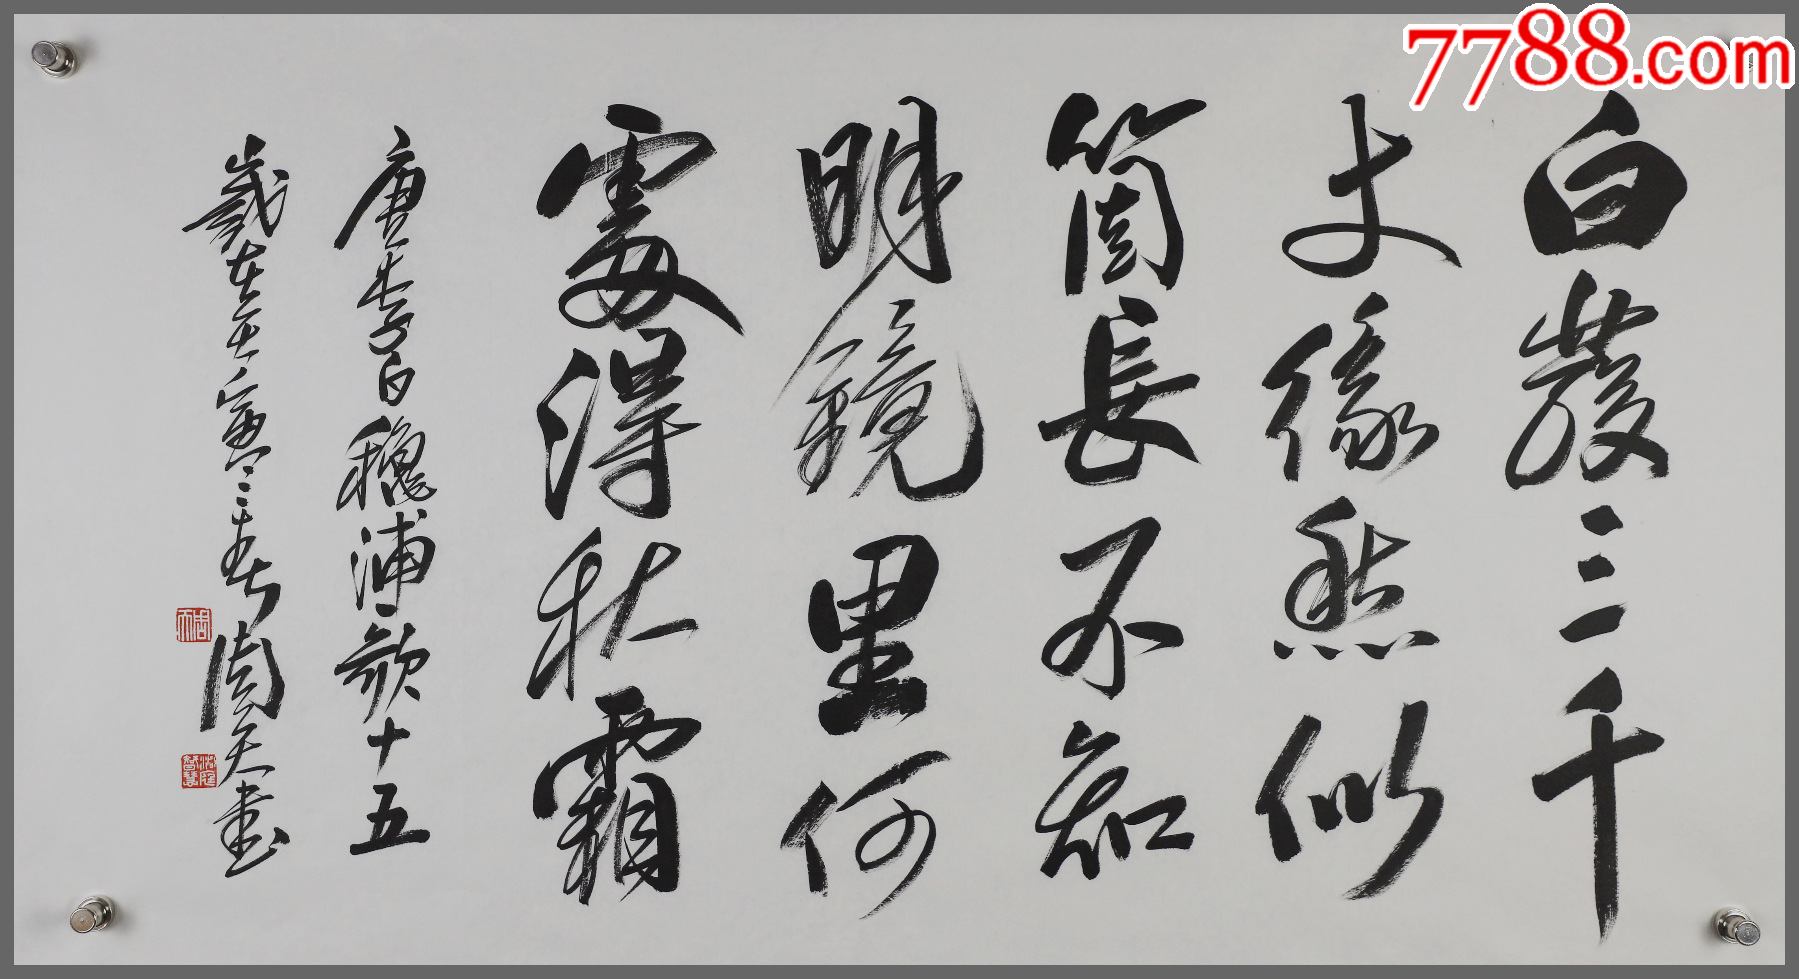 7788.com
白發三千
丈緣愁似
箇長不知
明鏡里何
處得秋霜
唐李白穐浦歌十五
歲在壬寅春周天書
周天